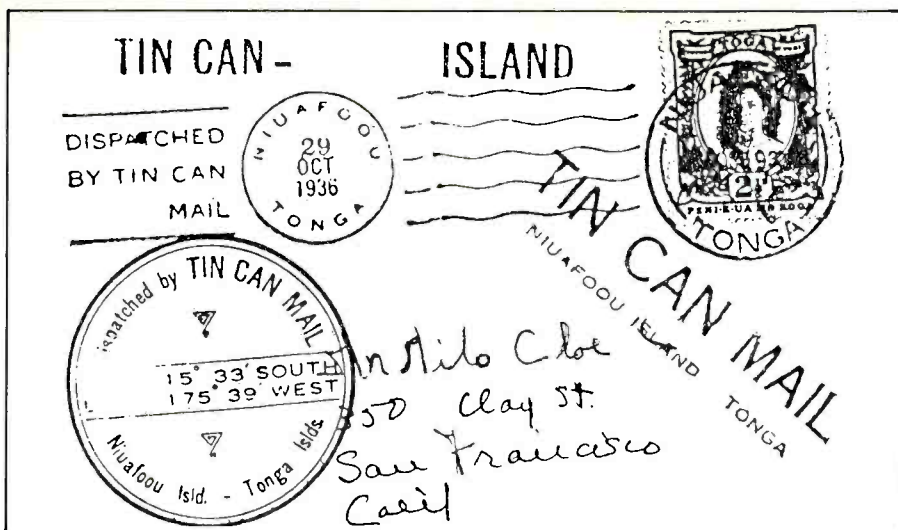 TIN CAN - ISLAND
DISPATCHED
BY TIN CAN
MAIL
NIUAFOOU
29
OCT
1936
TONGA
TOGA
2½
TONGA
TIN CAN MAIL
NIUAFOOU ISLAND TONGA
ispatched by TIN CAN MAIL
15° 33' SOUTH
175° 39' WEST
Niuafoou Isld. - Tonga Islds.
Milo
50 Clay St.
San Francisco
Calif